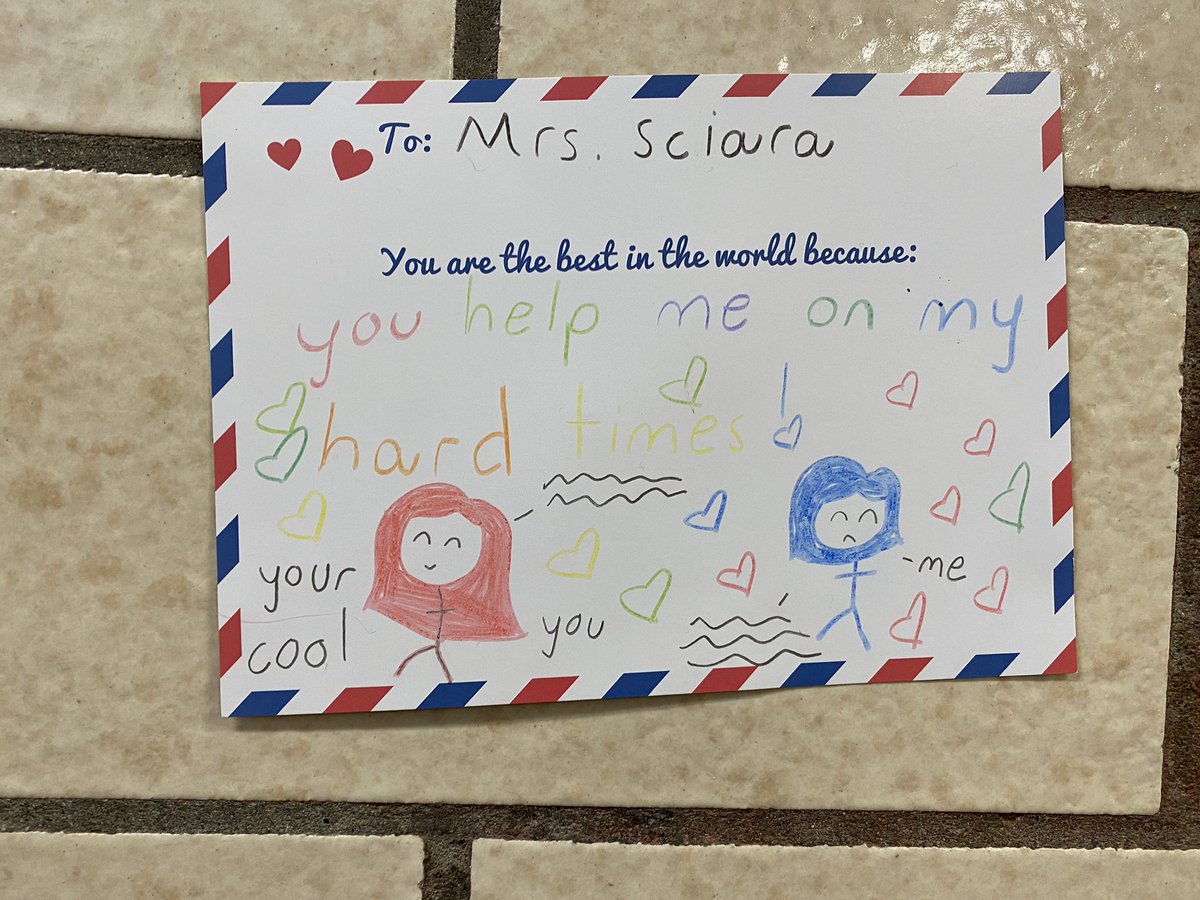 To: Mrs. Sciara
You are the best in the world because:
you help me on my
hard times!
your
cool
you
-me